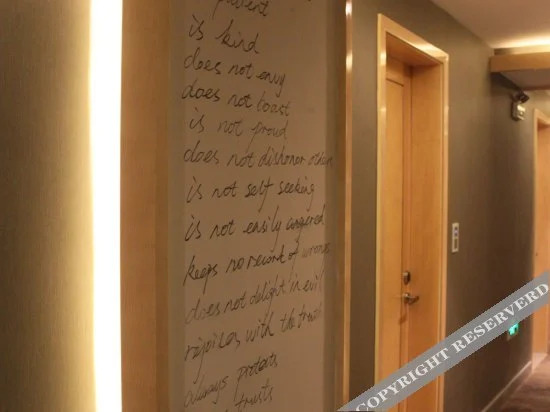 is kind
does not envy
does not boast
is not proud
does not dishonor others
is not self seeking
is not easily angered
keeps no record of wrongs
does not delight in evil
rejoices with the truth
always protects
trusts
COPYRIGHT RESERVERD